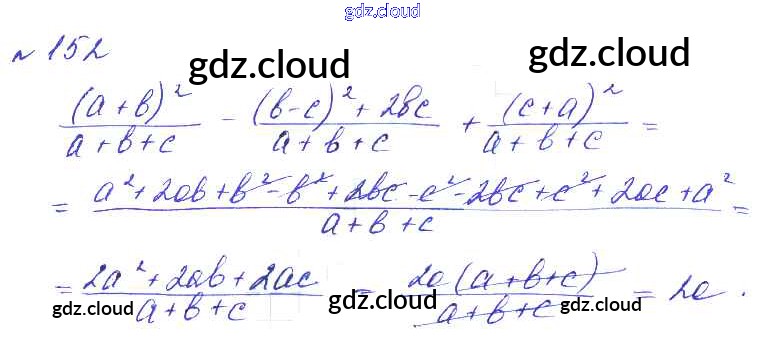 gdz.cloud
№ 152
gdz.cloud gdz.cloud
(a+b)²/(a+b+c) - ((b-c)²+2bc)/(a+b+c) + (c+a)²/(a+b+c) =
= (a²+2ab+b²-b²+2bc-c²-2bc+c²+2ac+a²)/(a+b+c) =
= (2a²+2ab+2ac)/(a+b+c) = 2a(a+b+c)/(a+b+c) = 2a.
gdz.cloud gdz.cloud gdz.cloud